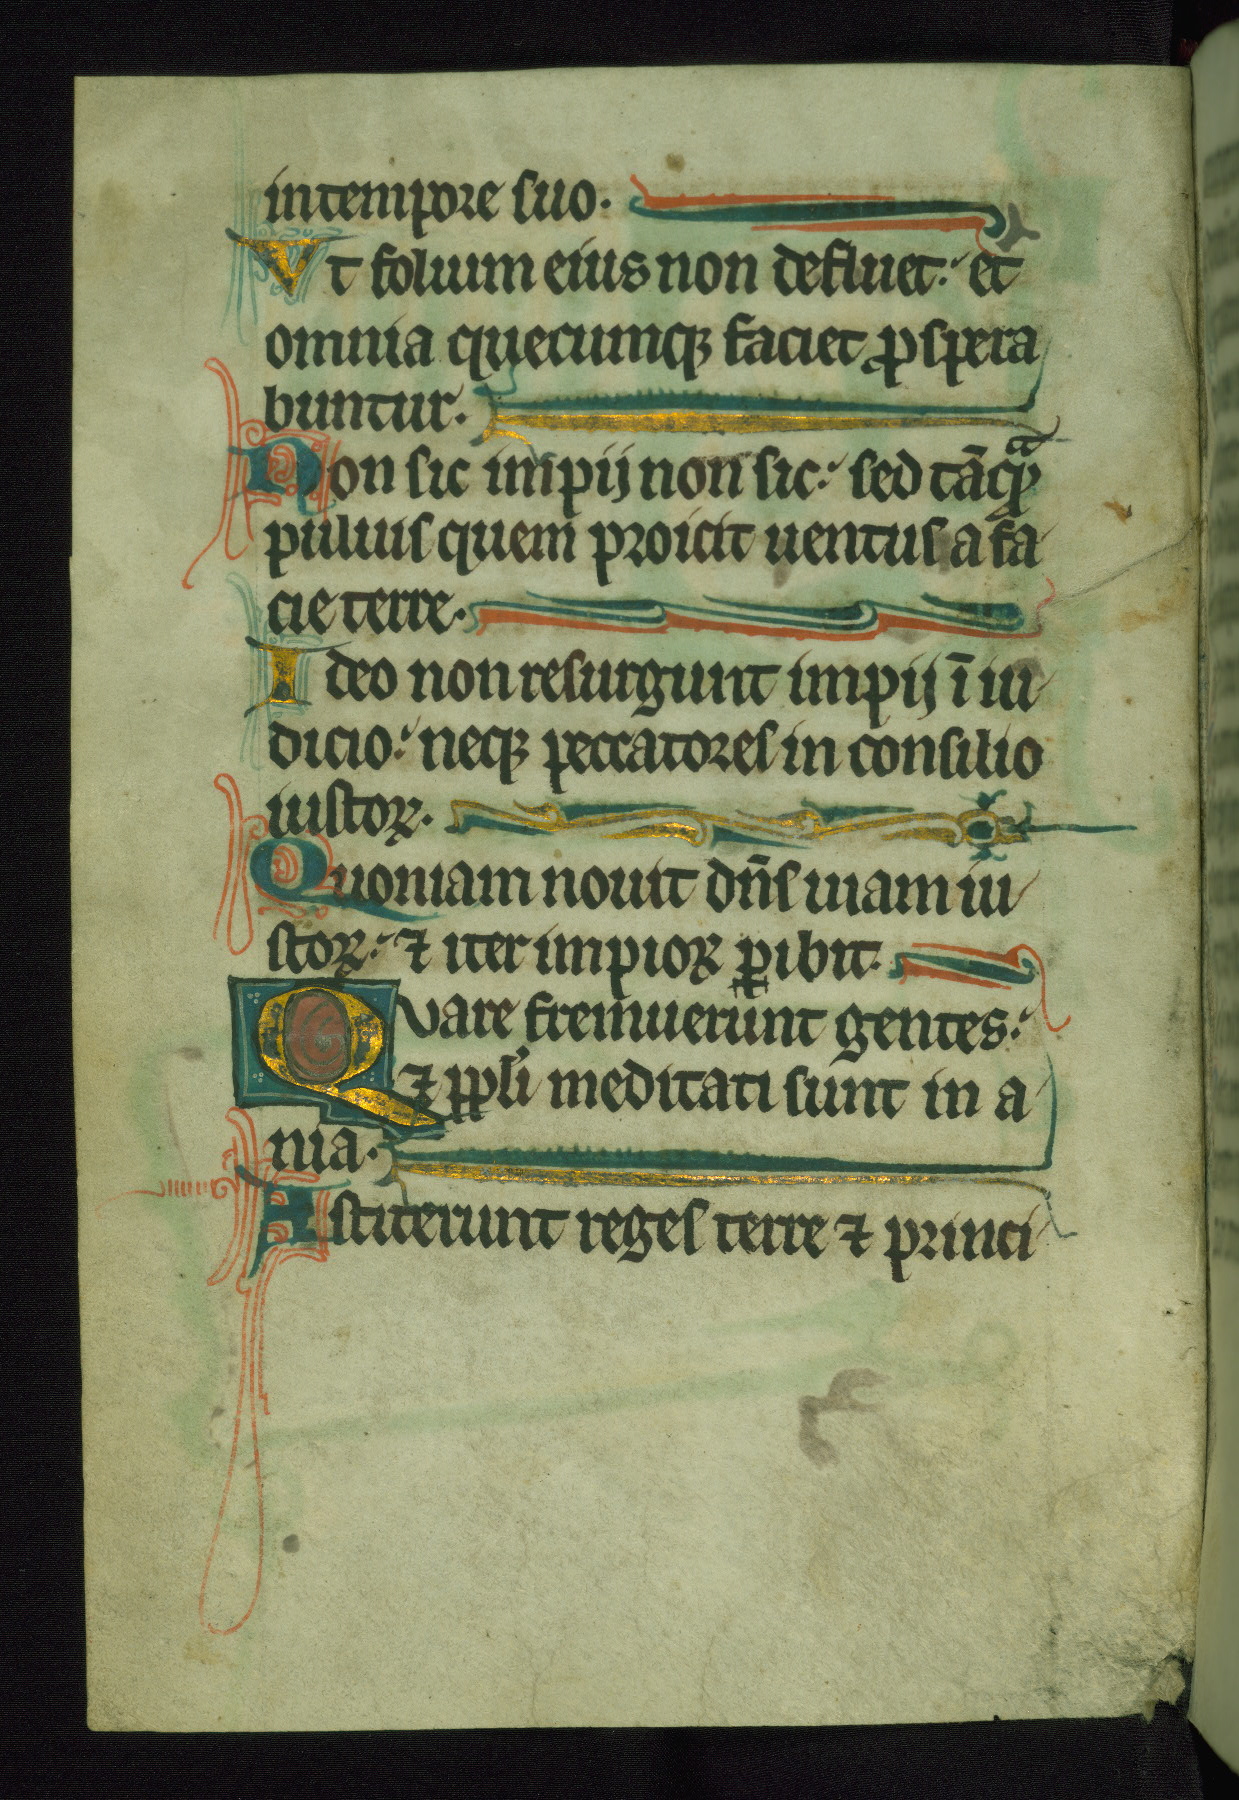 in tempore suo.
Vt folium eius non defluet: et
omnia quecumqꝫ faciet ꝓspera
buntur.
Non sic impij non sic: sed tāqͣꝫ
puluis quem proicit uentus a fa
cie terre.
Ideo non resurgunt impij ī iu
dicio: neqꝫ peccatores in consilio
iustoꝝ.
Quoniam nouit dn̄s uiam iu
stoꝝ: ⁊ iter impioꝝ ꝑibit.
Quare fremuerunt gentes:
⁊ ppl̓i meditati sunt in a
nia.
Astiterunt reges terre ⁊ princi